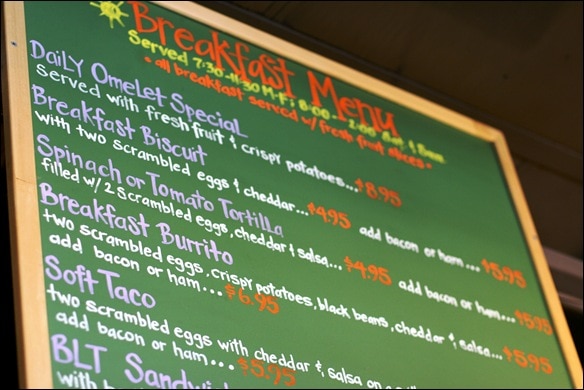 Breakfast Menu
Served 7:30-11:30 M-F; 8:00-2:00 Sat & Sun
• all breakfast served w/ fresh fruit slices •
DaiLY Omelet Special
Served with fresh fruit & crispy potatoes...$8.95
Breakfast Biscuit
with two scrambled eggs & cheddar...$4.95 add bacon or ham...$5.95
Spinach or Tomato Tortilla
filled w/ 2 scrambled eggs, cheddar & salsa...$4.95 add bacon or ham...$5.95
Breakfast Burrito
two scrambled eggs, crispy potatoes, black beans, cheddar & salsa...$5.95
add bacon or ham...$6.95
Soft Taco
two scrambled eggs with cheddar & salsa on a
add bacon or ham...$5.95
BLT Sandwich
with b